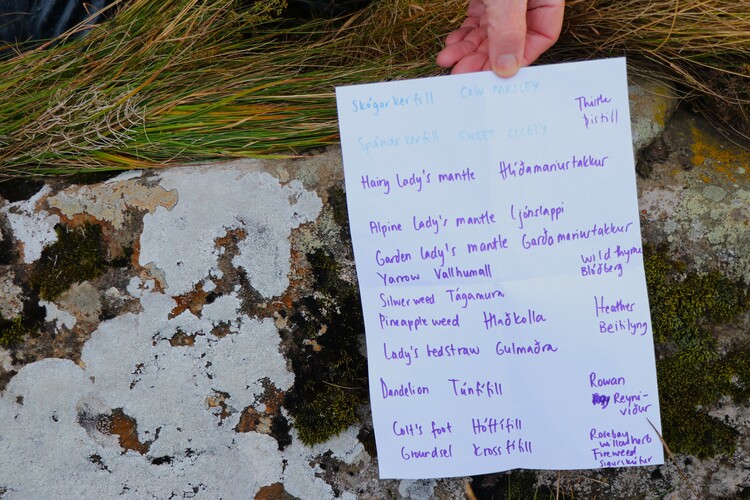 Skógarkerfill COW PARSLEY
Thistle
Þistill
Spánarkerfill SWEET CICELY
Hairy Lady's mantle Hlíðamaríustakkur
Alpine Lady's mantle Ljónslappi
Garden lady's mantle Garðamaríustakkur
Yarrow Vallhumall
wild thyme
Blóðberg
Silverweed Tágamura
Pineapple weed Hlaðkolla
Heather
Beitilyng
Lady's bedstraw Gulmaðra
Dandelion Túnfífill
Rowan
Reyni-
viður
Colt's foot Hóffífill
Groundsel Krossfífill
Rosebay
willowherb
Fireweed
sigurskúfur